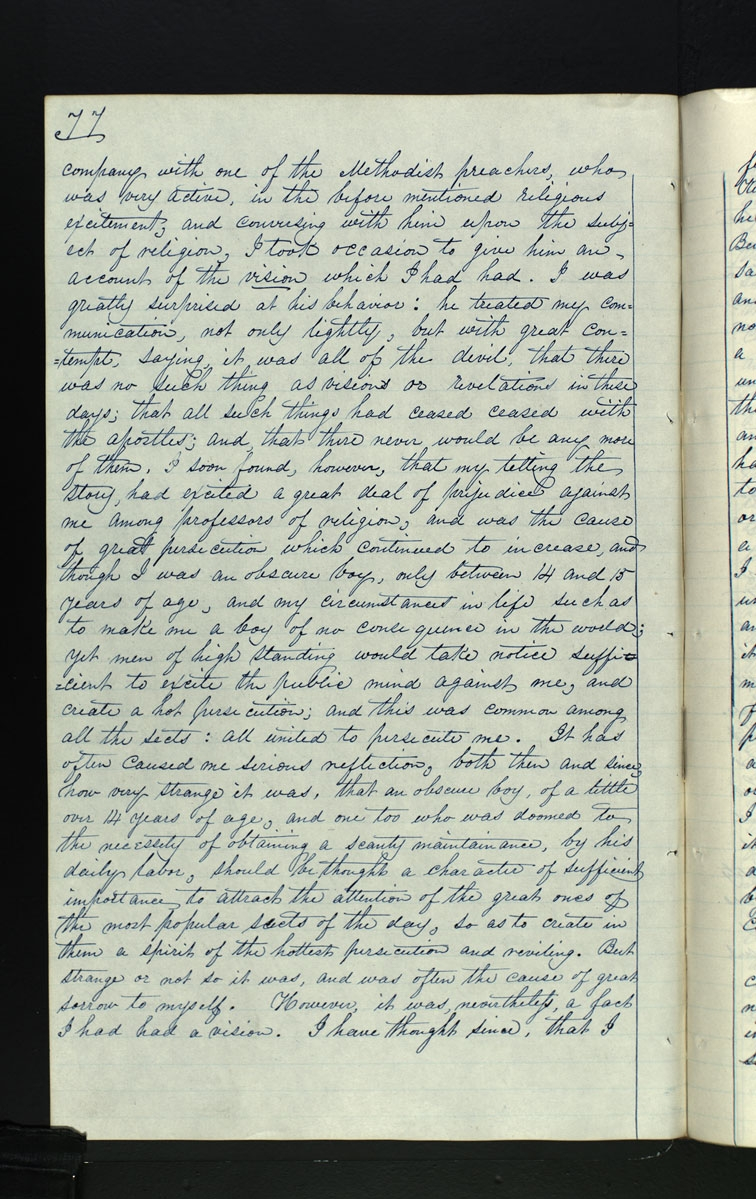 77
company with one of the Methodist preachers, who
was very active, in the before mentioned religious
excitement; and conversing with him upon the subj=
ect of religion, I took occasion to give him an
account of the vision which I had had. I was
greatly surprised at his behavior: he treated my com=
munication, not only lightly, but with great con=
=tempt, saying, it was all of the devil, that there
was no such thing as visions or revelations in these
days; that all such things had ceased ceased with
the apostles; and that there never would be any more
of them. I soon found, however, that my telling the
story, had excited a great deal of prejudice against
me among professors of religion, and was the cause
of great persecution which continued to increase, and
though I was an obscure boy, only between 14 and 15
years of age, and my circumstances in life such as
to make me a boy of no consequence in the world;
yet men of high standing would take notice suffi=
=cient to excite the public mind against me, and
create a hot persecution; and this was common among
all the sects: all united to persecute me. It has
often caused me serious reflection, both then and since,
how very strange it was, that an obscure boy, of a little
over 14 years of age, and one too who was doomed to
the necessity of obtaining a scanty maintainance, by his
daily labor, should be thought a character of sufficient
importance to attract the attention of the great ones of
the most popular sects of the day, so as to create in
them a spirit of the hottest persecution and reviling. But
strange or not so it was, and was often the cause of great
sorrow to myself. However, it was, nevertheless, a fact
I had had a vision. I have thought since, that I